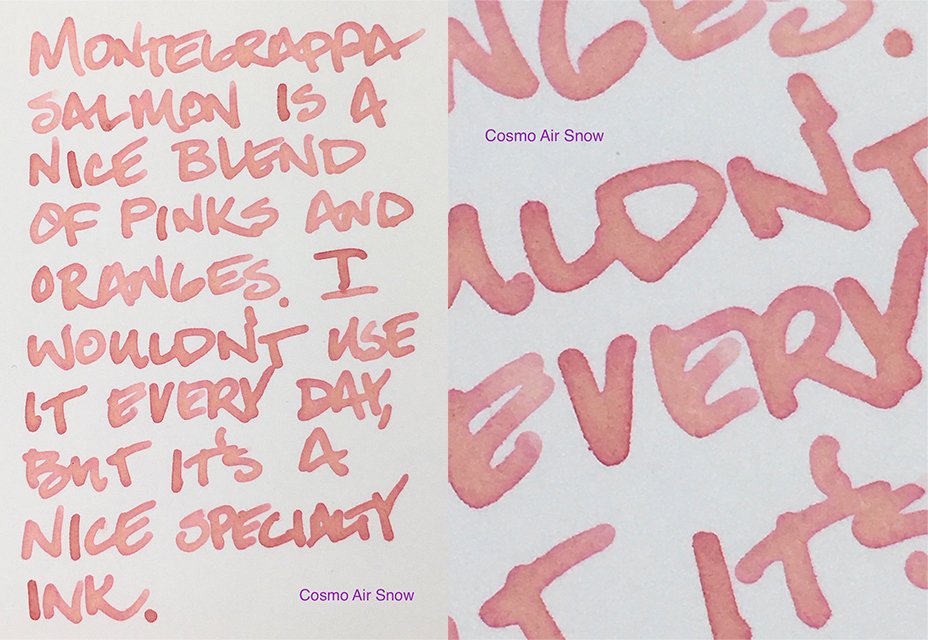 MONTEGRAPPA
SALMON IS A
NICE BLEND
OF PINKS AND
ORANGES. I
WOULDN'T USE
IT EVERY DAY,
BUT IT'S A
NICE SPECIALTY
INK.
Cosmo Air Snow
NGES.
Cosmo Air Snow
ULDN'T
EVERY
T IT'S